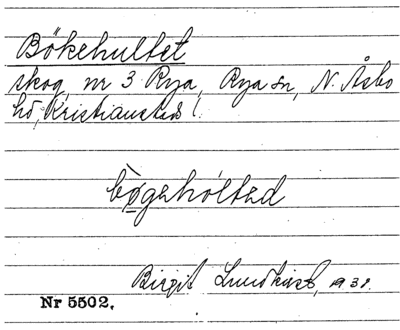 Bökehultet
skog, nr 3 Rya, Rya sn, N. Åsbo
hd, Kristianstads l.
bø̀gehóltad
Birgit Lundkvist, 1931.
Nr 5502.